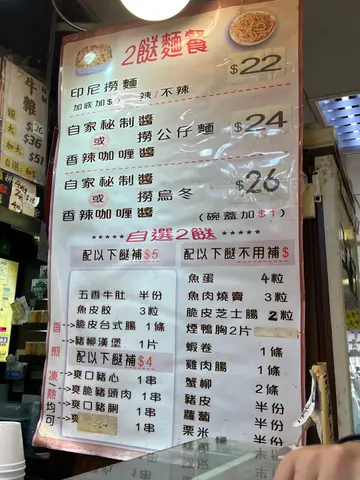 2餸麵餐
印尼撈麵
加底加$ 辣/不辣
$22
自家秘制醬
或 撈公仔麵 $24
香辣咖喱醬
自家秘制醬
或 撈烏冬 $26
香辣咖喱醬 (碗蓋加$1)
*****自選2餸*****
配以下餸補$5
五香牛肚 半份
魚皮餃 3粒
脆皮台式腸 1條
豬柳漢堡 1片
配以下餸補$4
爽口豬心 1串
爽脆豬頭肉 1串
爽口豬脷 1串
爽 1串
香煎 凍/熱均可
配以下餸不用補$
魚蛋 4粒
魚肉燒賣 3粒
脆皮芝士腸 2粒
煙鴨胸2片
蝦卷 1條
雞肉腸 1條
蟹柳 2條
豬皮 半份
蘿蔔 半份
栗米 半份
牛雜
$36
加大
$51